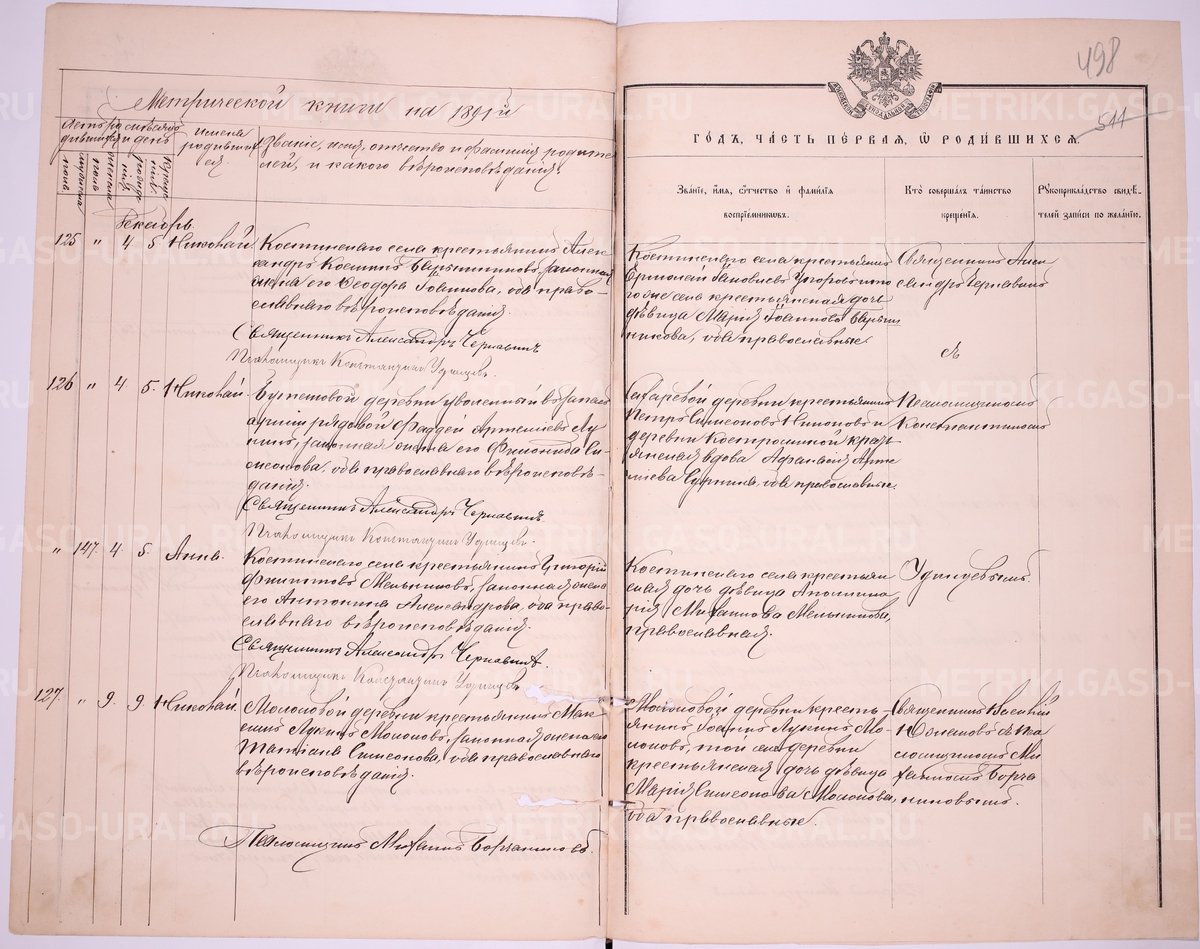 Метрической книги на 1891й
498
511
ГОДЪ, ЧАСТЬ ПЕРВАЯ, Ѡ РОДИВШИХСЯ.
имена родившихся.
Званіе, имя, отчество и фамилія родителей, и какого вѣроисповѣданія.
Званіе, имя, отчество и фамилія
воспріемниковъ.
Кто совершалъ таинство
крещенія.
Рукоприкладство свидѣ-
телей записи по желанію.
Декабрь.
125 " 4 5 Николай
Костинскаго села крестьянинъ Алек-
сандръ Косминъ законная
жена его Ѳеодора Іоаннова, оба право-
славнаго вѣроисповѣданія.
Священникъ Александръ Чернавинъ
Псаломщикъ Константинъ Удинцевъ.
Костинскаго села крестьянинъ
Ермолай Яковлевъ того
же села крестьянская дочь
дѣвица Марія Іоаннова
оба православные.
Священникъ Алек
сандръ Чернавинъ
съ
126 " 4 5. Николай.
деревни уволенный въ запасъ
арміи рядовой Фаддей Артемьевъ
законная жена его Си-
меонова, оба православнаго вѣроисповѣ-
данія.
Священникъ Александръ Чернавинъ
Псаломщикъ Константинъ Удинцевъ.
деревни крестьянинъ
Петръ Симеоновъ и
деревни кресть
янская вдова Афанасія Арте
міева оба православные.
Псаломщикомъ
Константиномъ
" 147. 4. 5. Анна.
Костинскаго села крестьянинъ Григорій
Филипповъ Мельниковъ, законная жена
его Антонина Александрова, оба право-
славнаго вѣроисповѣданія.
Священникъ Александръ Чернавинъ.
Псаломщикъ Константинъ Удинцевъ
Костинскаго села крестьян
ская дочь дѣвица Аполлина
рія Михаилова Мельникова,
православная.
Удинцевымъ.
127. " 9. 9. Николай.
Молоковой деревни крестьянинъ Мак-
симъ Лукинъ Молоковъ, законная жена его
Татіана Симеонова, оба православнаго
вѣроисповѣданія.
Псаломщикъ Михаилъ Борчаниновъ.
Молоковой деревни кресть-
янинъ Іоаннъ Лукинъ Мо-
локовъ, той же деревни
крестьянская дочь дѣвица
Марія Симеонова Молокова,
оба православные.
Священникъ Василій
съ пса
ломщикомъ Ми
хаиломъ Борча
ниновымъ.
METRIKI.GASO-URAL.RU